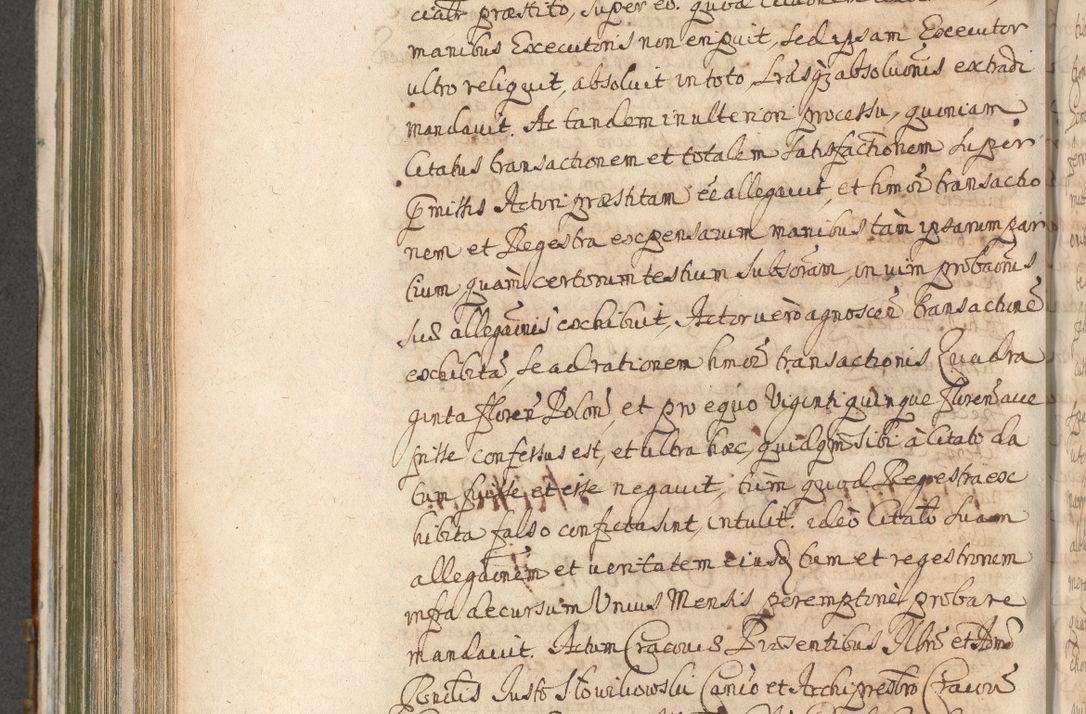 manibus Executoris non eripuit, sed ipsam Executor
ultro reliquit, absoluit in toto, Lrasq3 absoluoñis extradi
mandauit. Ac tandem in ulteriori processu, quoniam
Citatus transactionem et totalem satisfactionem super
Pmissis Actori præstitam ee allegauit, et hmoi transactio
nem et Regestra expensarum manibus tam ipsarum par
tium, quam certorum testium subscram, in vim probaoñis
suæ allegaoñis exhibuit, Actor vero agnoscen transactione
exhibita, se ad rationem hmoi transactionis Quadra
ginta floren Polon et pro equo Viginti quinque floren acce
pisse confessus est, et ultra hæc, quidqm sibi à Citato da
tum fuisse et esse negauit, tum quod Regestra ex
hibita falso conficta sint, intulit. ideo Citato suam
allegaoñem et veritatem eiusq tum et regestrorum
infra decursum Unius Mensis peremptorie probare
mandauit. Actum Cracouiæ Præsentibus Illri et Admo
Rendis Justo Słowikowski Canco et Archipresbro Cracou